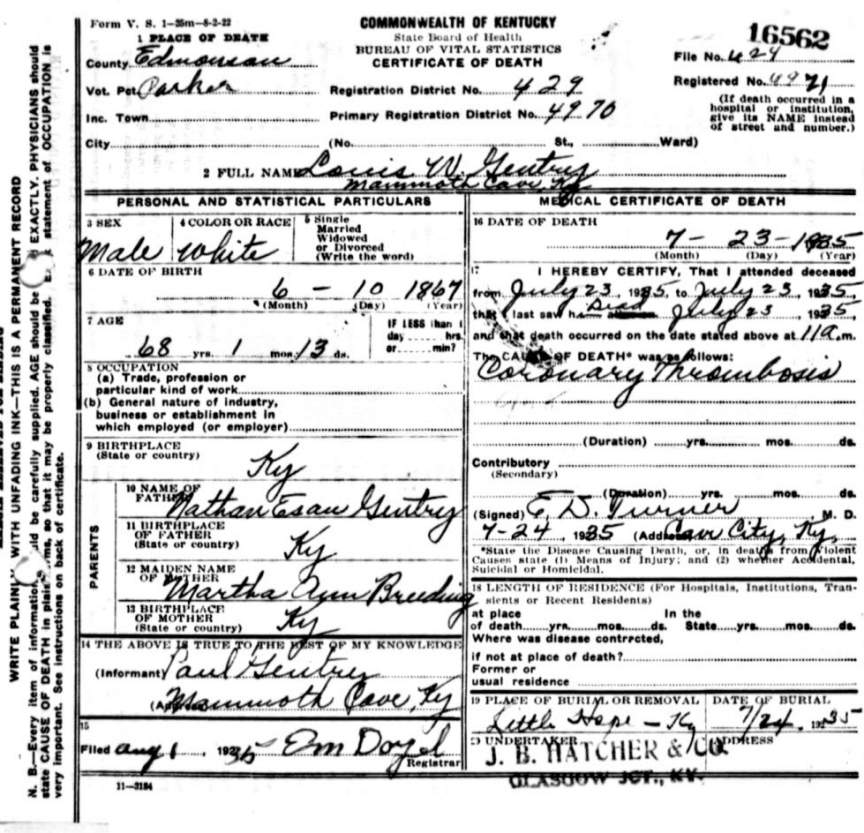 Form V. S. 1-35m-8-2-22
COMMONWEALTH OF KENTUCKY
State Board of Health
BUREAU OF VITAL STATISTICS
CERTIFICATE OF DEATH
16562
File No. 424
Registered No. 4971
(If death occurred in a hospital or institution, give its NAME instead of street and number.)
1 PLACE OF DEATH
County Edmonson
Vot. Pct. Parker
Inc. Town
City
Registration District No. 429
Primary Registration District No. 4970
(No. St., Ward)
2 FULL NAME Louis W. Gentry
Mammoth Cave, Ky
PERSONAL AND STATISTICAL PARTICULARS
3 SEX
Male
4 COLOR OR RACE
White
5 Single
Married
Widowed
or Divorced
(Write the word)
6 DATE OF BIRTH
6 - 10 1867
(Month) (Day) (Year)
7 AGE
68 yrs. 1 mos. 13 ds.
IF LESS than 1
day hrs.
or min?
8 OCCUPATION
(a) Trade, profession or
particular kind of work
(b) General nature of industry,
business or establishment in
which employed (or employer)
9 BIRTHPLACE
(State or country)
Ky
PARENTS
10 NAME OF
FATHER Nathan Esau Gentry
11 BIRTHPLACE
OF FATHER
(State or country) Ky
12 MAIDEN NAME
OF MOTHER Martha Ann Breeding
13 BIRTHPLACE
OF MOTHER
(State or country) Ky
14 THE ABOVE IS TRUE TO THE BEST OF MY KNOWLEDGE
(Informant) Paul Gentry
(Address) Mammoth Cave, Ky
15
Filed Aug 1 1935 Em Doyel
Registrar
11-3184
MEDICAL CERTIFICATE OF DEATH
16 DATE OF DEATH
7- 23-1935
(Month) (Day) (Year)
17 I HEREBY CERTIFY, That I attended deceased
from July 23, 1935, to July 23, 1935,
that I last saw h Died July 23, 1935,
and that death occurred on the date stated above at 11 a.m.
The CAUSE OF DEATH* was as follows:
Coronary Thrombosis
(Duration) yrs. mos. ds.
Contributory
(Secondary)
(Duration) yrs. mos. ds.
(Signed) E. D. Turner M. D.
7-24, 1935 (Address) Cave City, Ky.
*State the Disease Causing Death, or, in deaths from Violent
Causes state (1) Means of Injury; and (2) whether Accidental,
Suicidal or Homicidal.
18 LENGTH OF RESIDENCE (For Hospitals, Institutions, Tran-
sients or Recent Residents)
at place In the
of death yrs. mos. ds. State yrs. mos. ds.
Where was disease contracted,
if not at place of death?
Former or
usual residence
19 PLACE OF BURIAL OR REMOVAL
Little Hope - Ky
DATE OF BURIAL
7/24, 1935
20 UNDERTAKER
J. B. HATCHER & CO.
ADDRESS
GLASGOW JCT., KY.
WRITE PLAINLY WITH UNFADING INK—THIS IS A PERMANENT RECORD
N. B.—Every item of information should be carefully supplied. AGE should be EXACTLY. PHYSICIANS should
state CAUSE OF DEATH in plain terms, so that it may be properly classified. statement of OCCUPATION is
very important. See instructions on back of certificate.